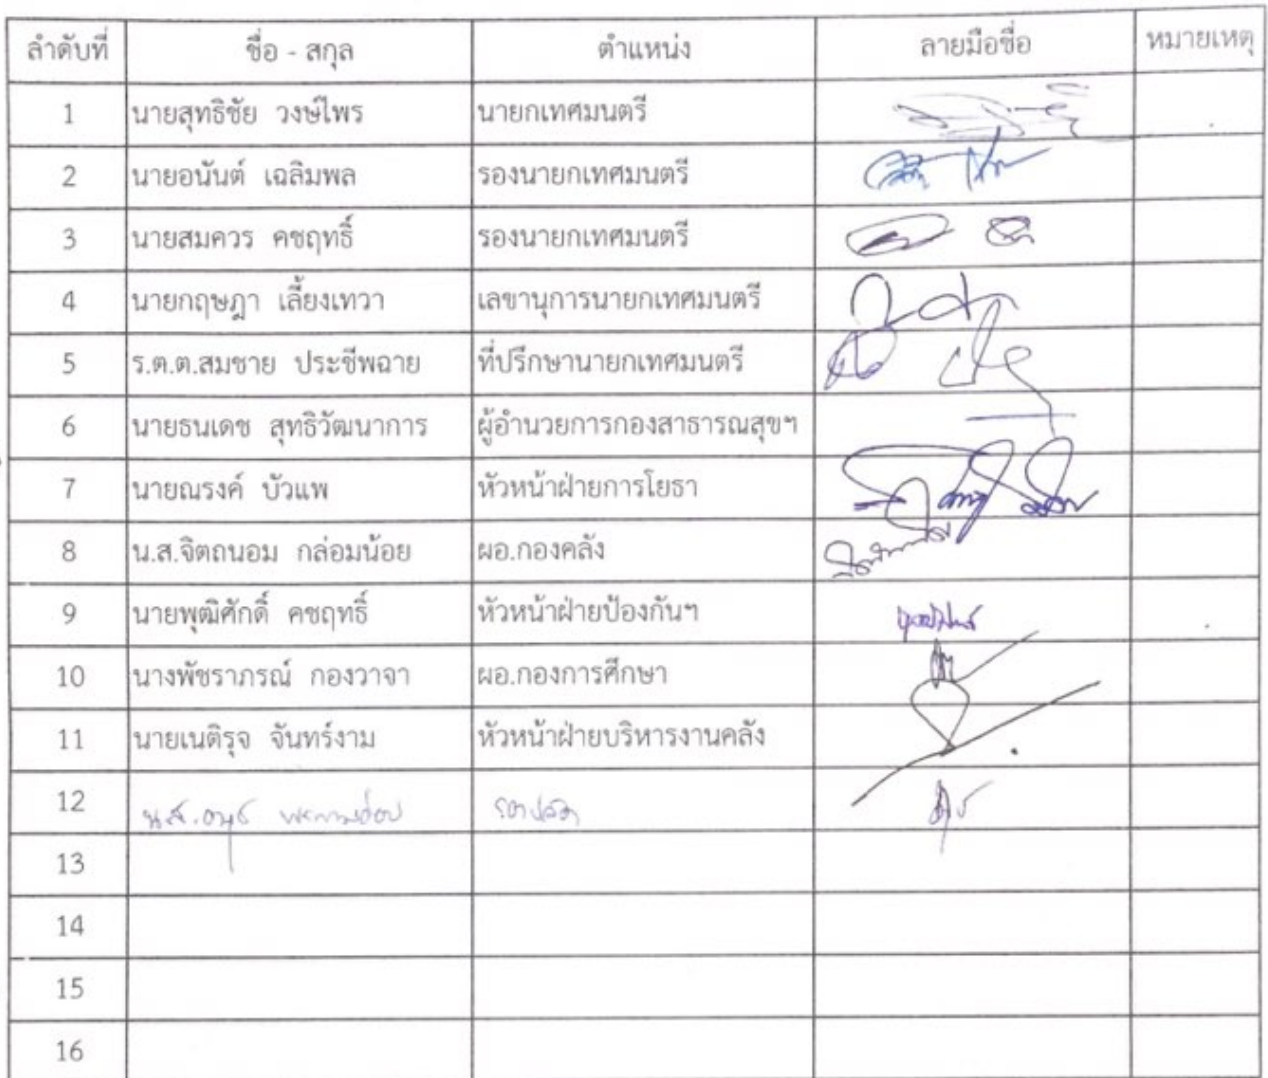 ลำดับที่ ชื่อ - สกุล ตำแหน่ง ลายมือชื่อ หมายเหตุ
1 นายสุทธิชัย วงษ์ไพร นายกเทศมนตรี
2 นายอนันต์ เฉลิมพล รองนายกเทศมนตรี
3 นายสมควร คชฤทธิ์ รองนายกเทศมนตรี
4 นายกฤษฎา เลี้ยงเทวา เลขานุการนายกเทศมนตรี
5 ร.ต.ต.สมชาย ประชีพฉาย ที่ปรึกษานายกเทศมนตรี
6 นายธนเดช สุทธิวัฒนาการ ผู้อำนวยการกองสาธารณสุขฯ
7 นายณรงค์ บัวแพ หัวหน้าฝ่ายการโยธา
8 น.ส.จิตถนอม กล่อมน้อย ผอ.กองคลัง
9 นายพุฒิศักดิ์ คชฤทธิ์ หัวหน้าฝ่ายป้องกันฯ
10 นางพัชราภรณ์ กองวาจา ผอ.กองการศึกษา
11 นายเนติรุจ จันทร์งาม หัวหน้าฝ่ายบริหารงานคลัง
12 น.ส. รองปลัด
13
14
15
16